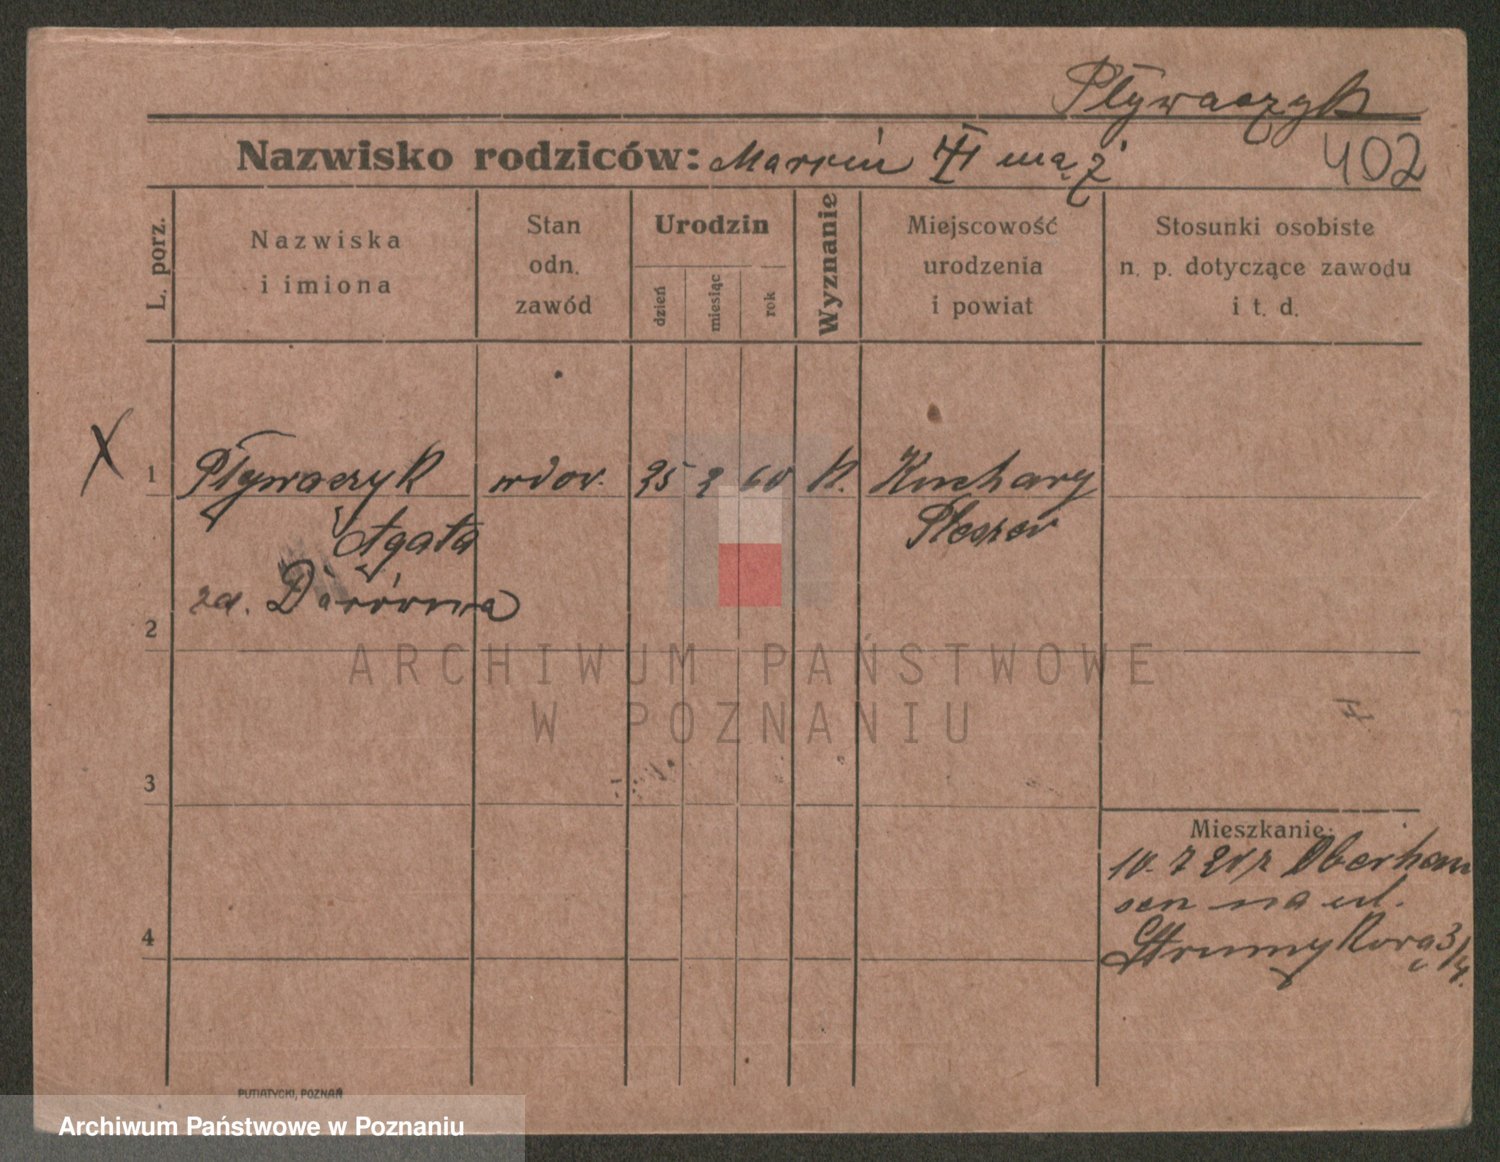 Pływaczyk
Nazwisko rodziców: Marcin II mąż
402
L. porz.
Nazwiska
i imiona
Stan
odn.
zawód
Urodzin
dzień
miesiąc
rok
Wyznanie
Miejscowość
urodzenia
i powiat
Stosunki osobiste
n. p. dotyczące zawodu
i t. d.
X
1 Pływaczyk wdow. 25 2 60 k. Kuchary
Agata Pleszew
zd.
2
ARCHIWUM PAŃSTWOWE
W POZNANIU
3
Mieszkanie:
10. 7 z Oberhau
sen na ul.
4
Strumykową 3/4.
PUTIATYCKI, POZNAŃ
Archiwum Państwowe w Poznaniu